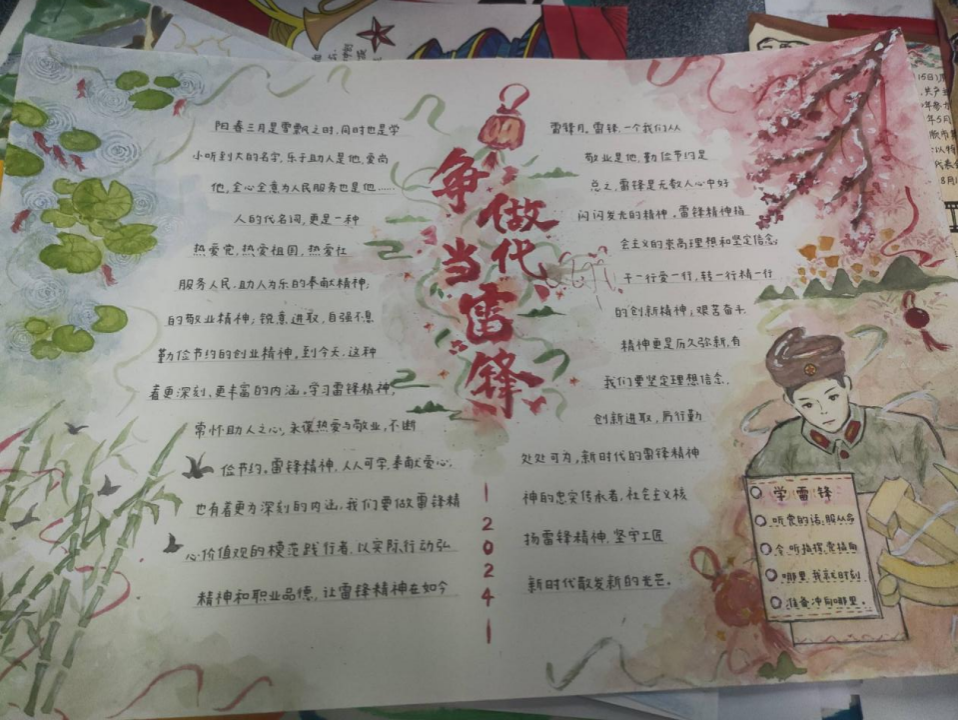 争做当代雷锋
阳春三月是雪飘之时,同时也是学
雷锋月。雷锋,一个我们从
小听到大的名字,乐于助人是他,爱岗
敬业是他,勤俭节约是
他,全心全意为人民服务也是他……
总之,雷锋是无数人心中好
人的代名词,更是一种
闪闪发光的精神。雷锋精神指
热爱党,热爱祖国,热爱社
会主义的崇高理想和坚定信念,
服务人民、助人为乐的奉献精神;
干一行爱一行,转一行精一行
的敬业精神;锐意进取、自强不息
的创新精神;艰苦奋斗
勤俭节约的创业精神,到今天,这种
精神更是历久弥新,有
着更深刻、更丰富的内涵。学习雷锋精神,
我们要坚定理想信念,
常怀助人之心,永葆热爱与敬业,不断
创新进取,厉行勤
俭节约。雷锋精神,人人可学,奉献爱心,
处处可为,新时代的雷锋精神
也有着更为深刻的内涵,我们要做雷锋精
神的忠实传承者,社会主义核
心价值观的模范践行者,以实际行动弘
扬雷锋精神,坚守工匠
精神和职业品德,让雷锋精神在如今
新时代散发新的光芒。
2024
学雷锋
听党的话,服从命
令,听指挥,党指向
哪里,我就时刻
准备冲向哪里。